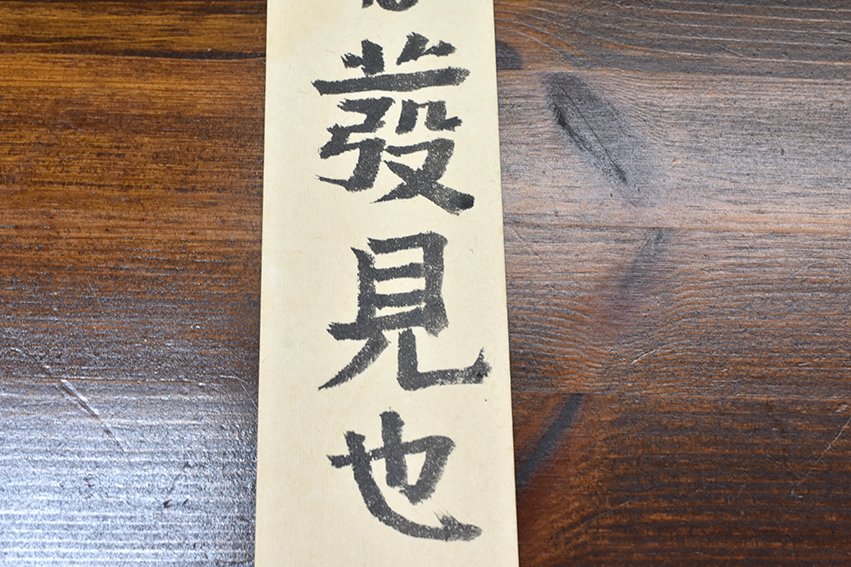 發見也